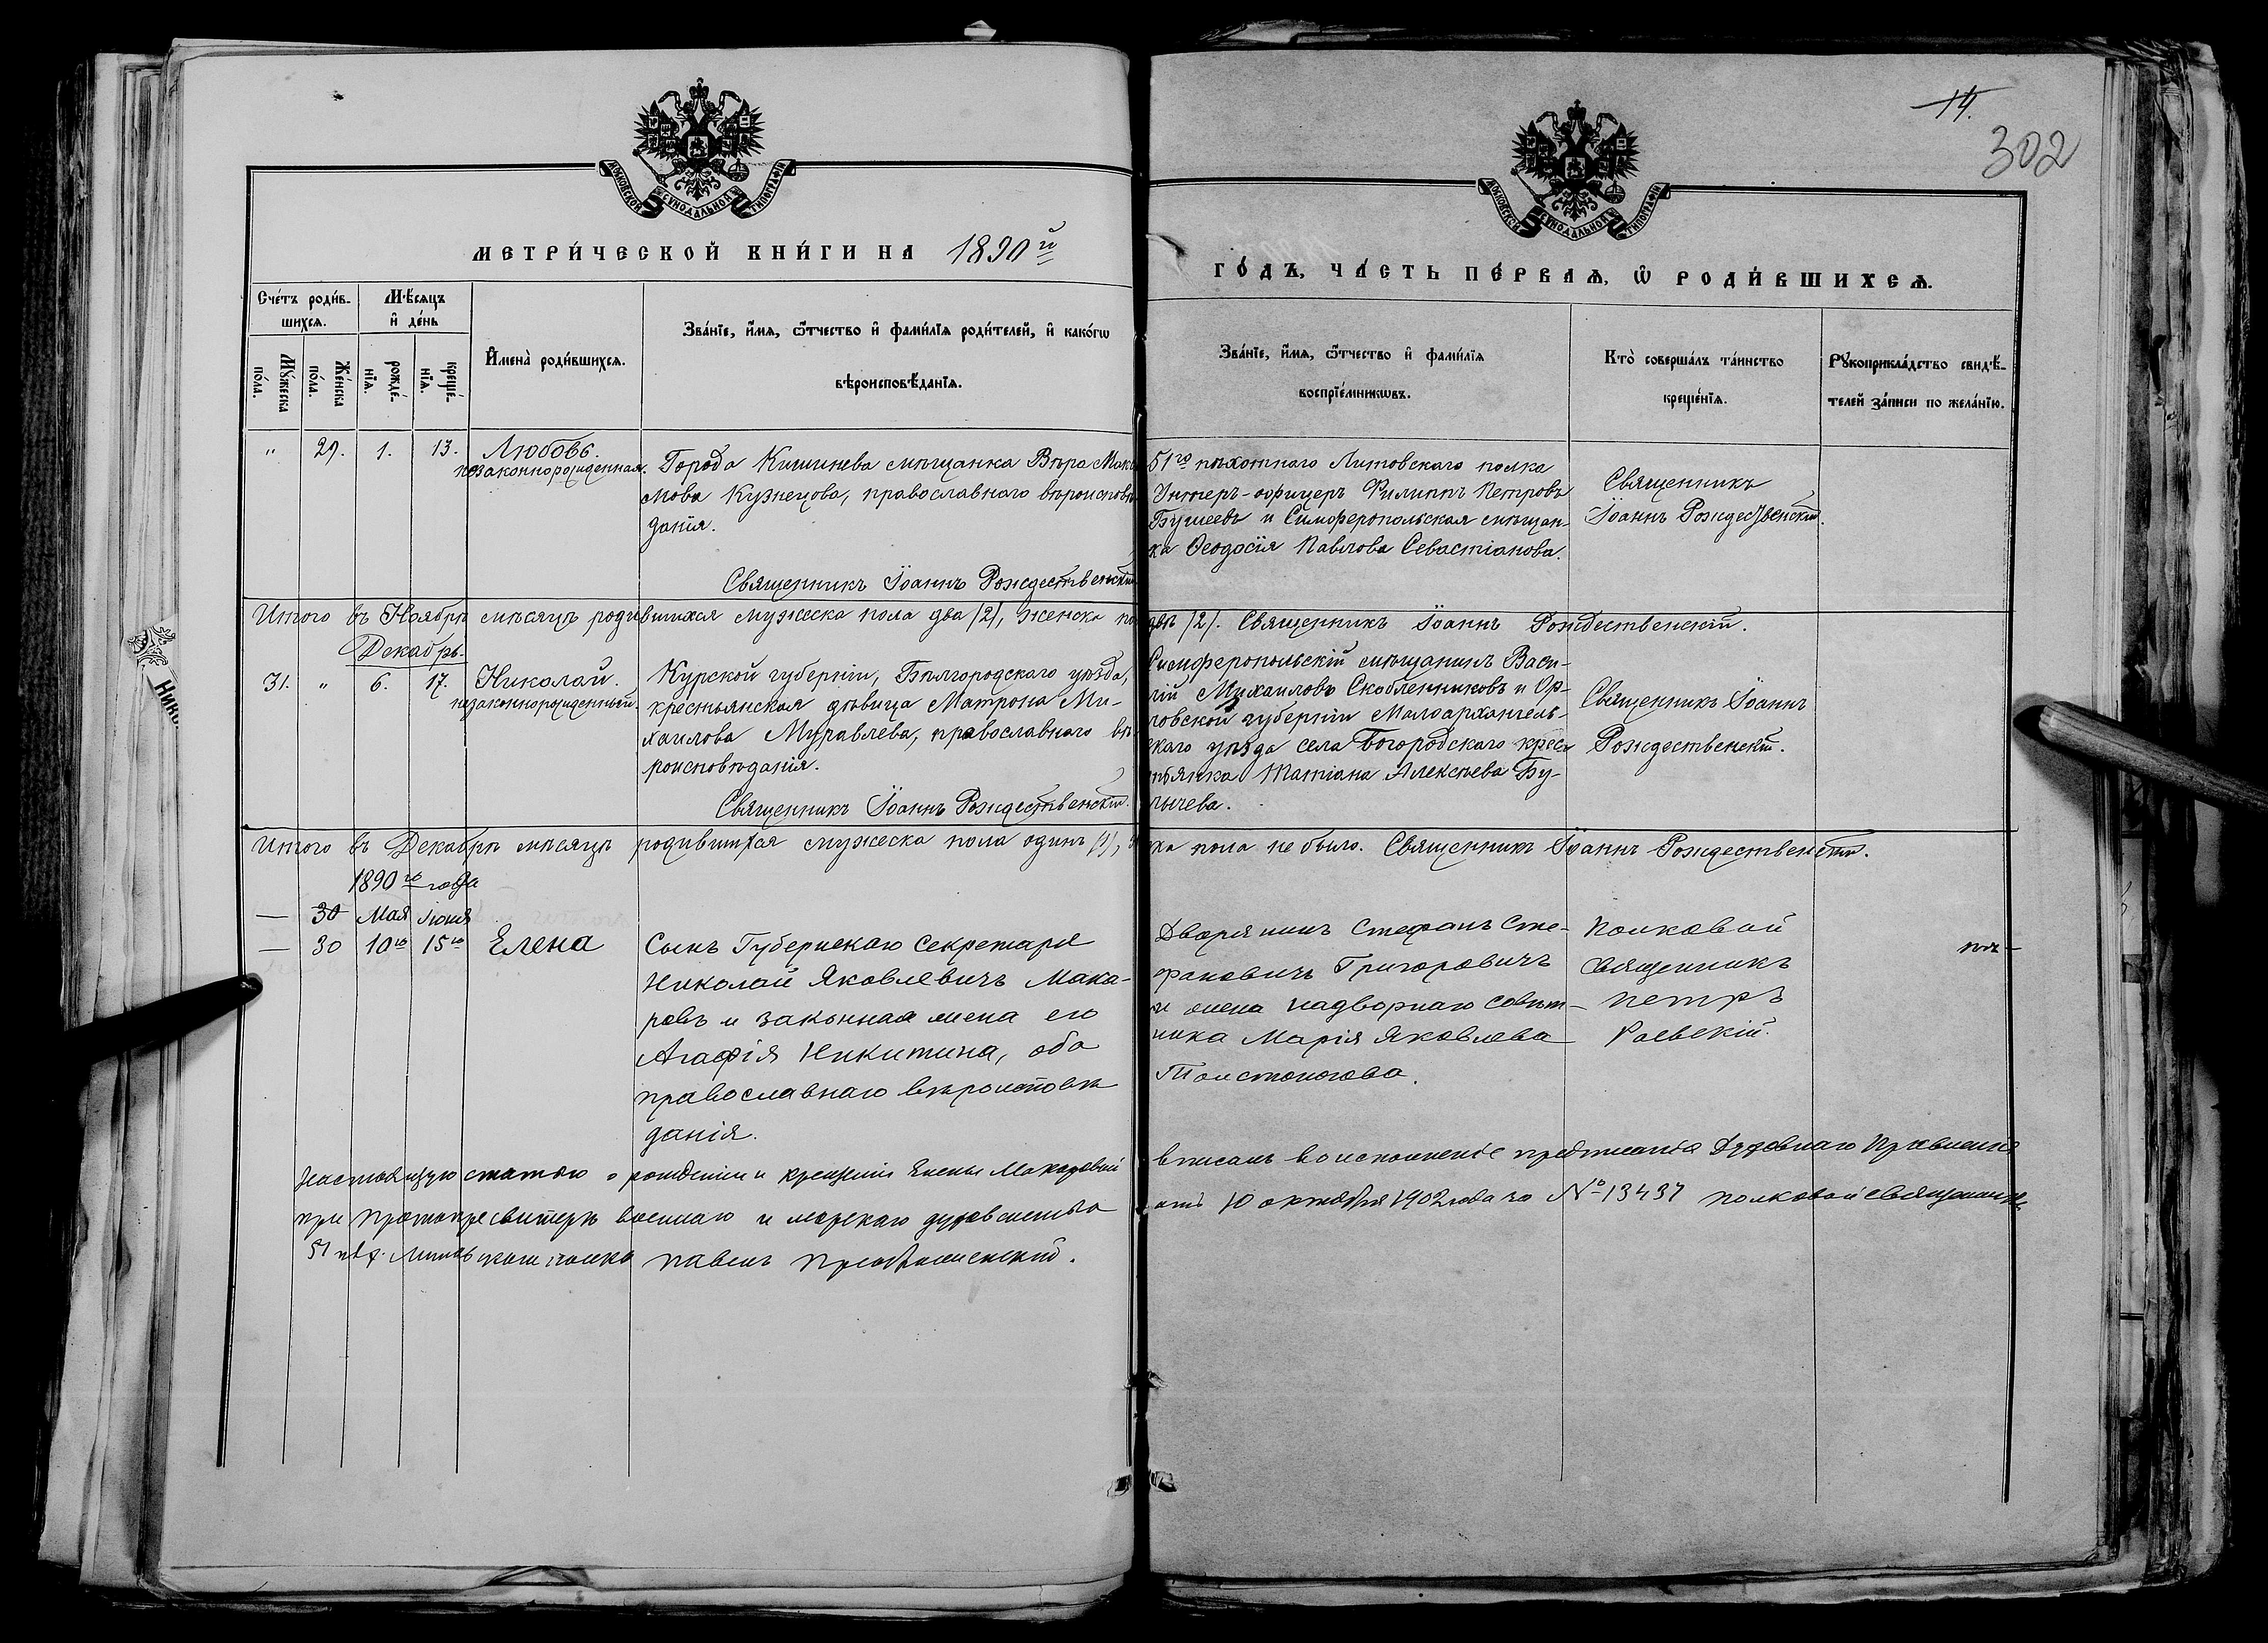 14.
302
МОСКОВСКОЙ СУНОДАЛЬНОЙ ТИПОГРАФІИ
МОСКОВСКОЙ СУНОДАЛЬНОЙ ТИПОГРАФІИ
МЕТРИ́ЧЕСКОЙ КНИ́ГИ НА 1890й
ГО́ДЪ, ЧА́СТЬ ПЕ́РВАѦ, Ѽ РОДИ́ВШИХСѦ.
Сче́тъ роди́в-
шихся.
Мѣ́сяцъ
и҆ де́нь
Мꙋ́жеска
по́ла.
Же́нска
по́ла.
рожде́-
нїя.
креще́-
нїя.
И҆мена̀ роди́вшихся.
Зва́нїе, и҆́мя, ѻ҆́тчество и҆ фами́лїя роди́телей, и҆ како́гѡ
вѣроисповѣ́данїя.
Зва́нїе, и҆́мя, ѻ҆́тчество и҆ фами́лїя
воспрїе́мникѡвъ.
Кто̀ соверша́лъ та́инство
креще́нїя.
Рꙋкоприкла́дство свидѣ́-
телей за́писи по жела́нїю.
" 29. 1. 13. Любовь.
незаконнорожденная.
Города Кишинева мѣщанка Вѣра Макс
мова Кузнецова, православнаго вѣроисповѣ
данія.
Священникъ Іоаннъ Рождественскій
51го пѣхотнаго Литовскаго полка
Унтеръ-офицеръ Филиппъ Петровъ
Бушевъ и Симферопольская мѣщан-
ка Ѳеодосія Павлова Севастіанова.
Священникъ
Іоаннъ Рождественскій.
Итого въ Ноябрѣ мѣсяцѣ родившихся мужеска пола два /2/, женска по
двѣ /2/. Священникъ Іоаннъ Рождественскій.
Декабрь.
31. " 6. 17. Николай.
незаконнорожденный.
Курской губерніи, Бѣлгородскаго уѣзда,
крестьянская дѣвица Матрона Ми-
хаилова Муравлева, православнаго вѣ
роисповѣданія.
Священникъ Іоаннъ Рождественскій.
Симферопольскій мѣщанинъ Васи-
лій Михаиловъ Скобленниковъ и Ор-
ловской губерніи Малоархангель-
скаго уѣзда села Богородскаго крес-
тьянка Татіана Алексѣева Бу-
лычева.
Священникъ Іоаннъ
Рождественскій.
Итого въ Декабрѣ мѣсяцѣ родившихся мужеска пола одинъ /1/,
ка пола не было. Священникъ Іоаннъ Рождественскій.
1890го года
— 30 Мая Іюня
— 30 10го 15го Елена
Сынъ Губернскаго Секретаря
Николай Яковлевичъ Мака-
ровъ и законная жена его
Агафія Никитина, оба
православнаго вѣроисповѣ
данія.
Дворянинъ Стефанъ Сте-
фановичъ Григоровичъ
и жена надворнаго совѣт-
ника Марія Яковлева
Толстоногова.
Полковой
священникъ
Петръ
Раевскій.
Настоящую статью о рожденіи и крещеніи Елены Макаровой
вписалъ во исполненіе предписанія Духовнаго Правленія
при Протопресвитерѣ военнаго и морскаго духовенства
отъ 10 октября 1902 года за № 13437 полковой священникъ
51 пѣх. Литовскаго полка Павелъ Преображенскій.